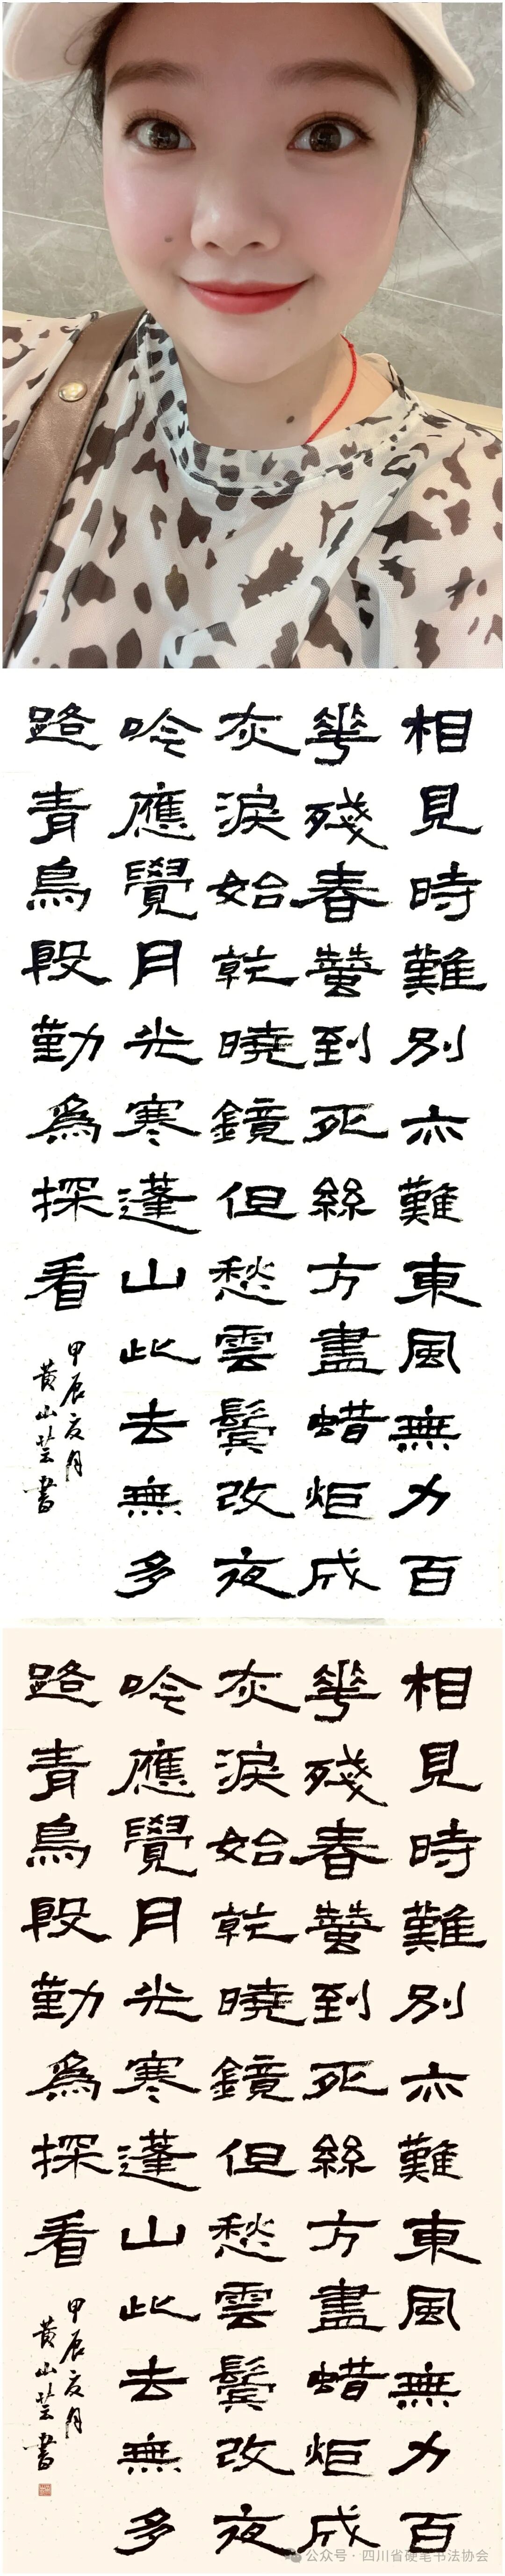 相見時難別亦難東風無力百
華殘春蠶到死絲方盡蜡炬成
灰淚始乾曉鏡但愁雲鬢改夜
吟應覺月光寒蓬山此去無多
路青鳥殷勤爲探看
甲辰夏月
黄山芸書
相見時難別亦難東風無力百
華殘春蠶到死絲方盡蜡炬成
灰淚始乾曉鏡但愁雲鬢改夜
吟應覺月光寒蓬山此去無多
路青鳥殷勤爲探看
甲辰夏月
黄山芸書
公众号 · 四川省硬笔书法协会